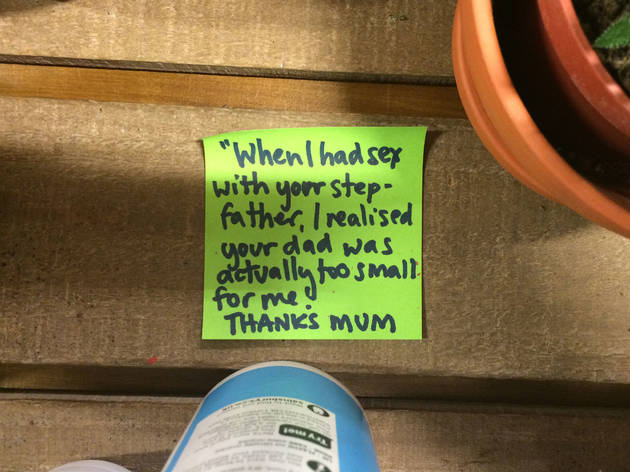 "When I had sex
with your step-
father, I realised
your dad was
actually too small
for me.
THANKS MUM
sainsburys.co.uk
Try me!